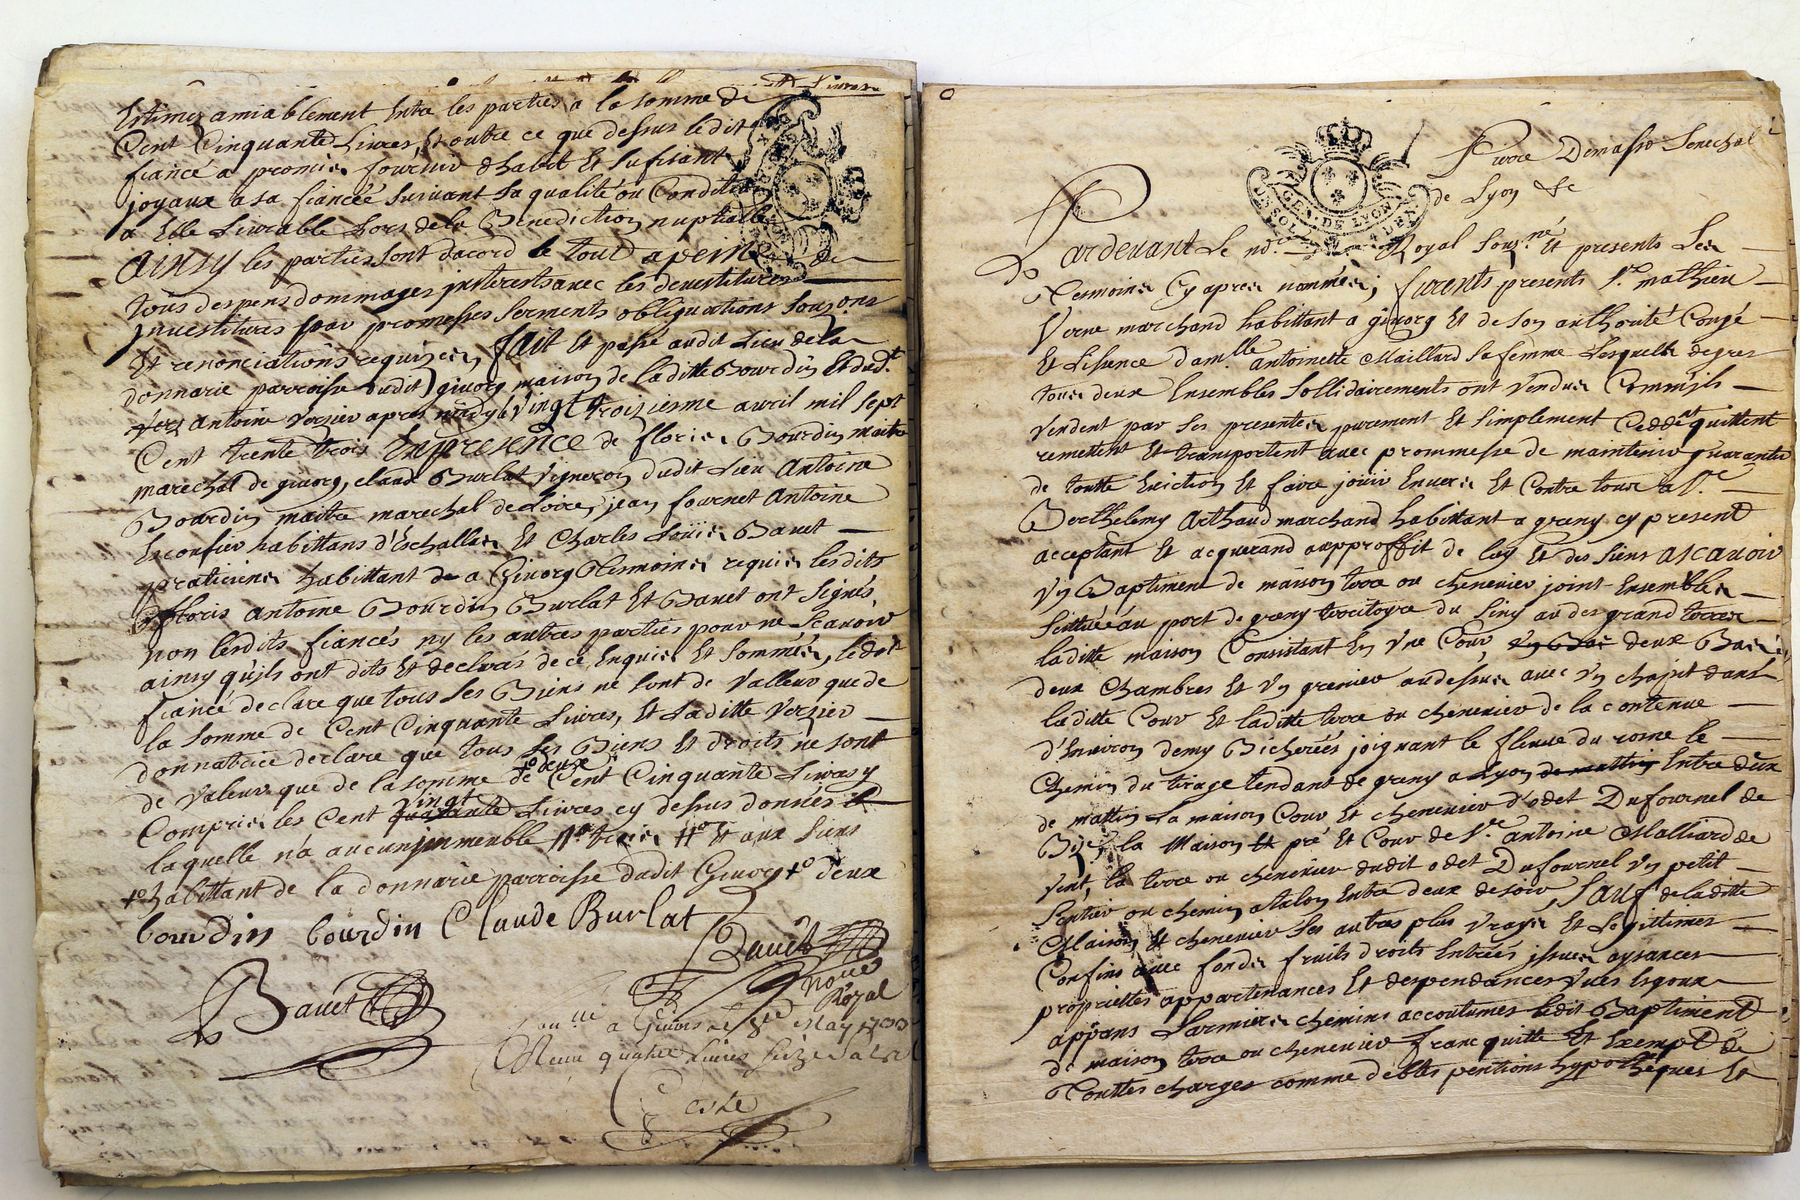 Estimez amiablement Entre les parties a la somme de
Cent Cinquante Livres, Et outre ce que dessus ledit
fiancé a promis fournir dhabit Et sufisant
joyaux a sa fiancée suivant sa qualité ou Condition
a Elle Livrable Lors de la Benediction nuptialle
Ainsy les parties sont dacord le tout a peine de
tous despens dommages interests avec les devestitures
investitures par promesses serments obligations
Et renonciations requizes, fait Et passé audit Lieu de la
donnarie parroisse dudit givorg maison de laditte Bourdin Et dud.t
Antoine Verzier apres midy le vingt troizieme avril mil sept
Cent trente trois En presence de floris Bourdin maitre
marechal de givorg, claude Burlat vigneron dudit Lieu Antoine
Bourdin maitre marechal de Loire, jean fournet Antoine
Escoufier habittans d'Eschallas Et Charles Loüis Bavet
praticiens habittant de a Givorg Tesmoins requis lesdits
floris Antoine Bourdin Burlat Et Bavet ont signés
non lesdits fiancés ny les autres parties pour ne scavoir
ainsy quils ont dits Et declarés de ce Enquis Et sommés, ledit
fiancé declare que tous ses Biens ne sont de Valleur que de
la somme de Cent Cinquante Livres, Et Laditte Verzier
donnatrice declare que tous ses Biens Et droits ne sont
de valeur que de la somme de deux Cent Cinquante Livres y
Compris les Cent quarante vingt Livres cy dessus donnés
laquelle n'a aucun immeuble Et aux siens
habittant de la donnarie parroisse dudit Givorg deux
bourdin bourdin Claude Burlat
Bavet
Bavet
no.re Royal
a Givors le 8e May 1733
Receu quatre Livres seize sols
Coste
GEN. DE LYON
de Lyon &c
Pardevant Le no.re Royal sous.né Et presents Les
Tesmoins Cy apres nommés, furents présents S.r mathieu
Verne marchand habittant a givorg Et de son authorité Congé
Et Lisence dam.lle antoinette Maillard sa femme Lesquels degres
tous deux Ensembles sollidairements ont vendus Comm'ils
vendent par ses presentes purement Et simplement Ceddent quittent
remettent Et transportent avec prommesse de maintenir guarantir
de toutte Eviction Et faire jouir Envers Et Contre tous a S.r
Berthelemy Arthaud marchand habittant a greny cy present
acceptant Et acquerand a sapproffit de luy Et des siens ascavoir
Vn Baptiment de maison terre ou chenevier joint Ensembles
scittués au port de greny territoyre du
laditte maison Consistant En Vne Cour, deux Bas
deux Chambres Et Vn grenier audessus avec Vn chapit dans
laditte Cour Et laditte terre ou chenevier de la contenue
d'Environ demy Bicherés joignant le fleuve du rosne le
Chemin du tirage tendant de greny a Lyon de mattin Entre deux
de mattin La maison Cour Et chenevier d'odet Dufournel de
Bize, la Maison pré Et Cour de S.r antoine Malliard de
vent, la terre ou chenevier dudit odet Dufournel Vn petit
sentier ou chemin a talon Entre deux de soir, Sauf de laditte
Maison Et chenevier ses autres plus vrays Et Legittimes
Confins avec fonds fruits droits Entrées issues aysances
propriettes appartenances Et despendances Vues Esgoux
appans Larmiers chemins accoutumes ledit Baptiment
de maison terre ou chenevier franc quitte Et Exempt de
Touttes charges comme debtes pentions hypothèques Et